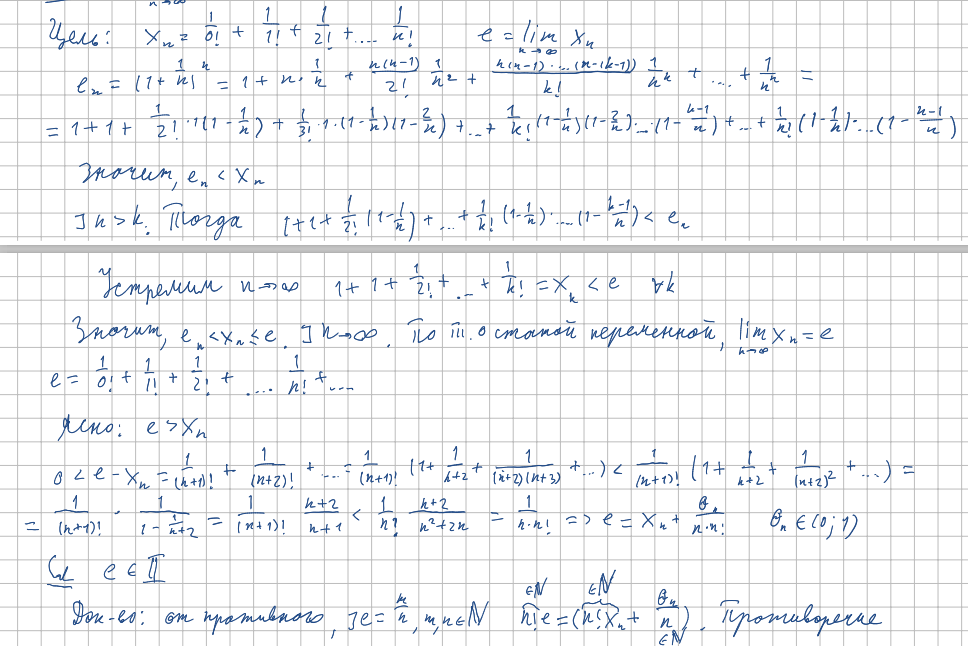 n→∞
Цель: xₙ = 1/0! + 1/1! + 1/2! + .... 1/n!   e = lim xₙ n→∞
eₙ = (1 + 1/n)ⁿ = 1 + n · 1/n + n(n-1)/2! 1/n² + n(n-1)·...(n-(k-1))/k! 1/nᵏ + ... + 1/nⁿ =
= 1 + 1 + 1/2! · 1(1 - 1/n) + 1/3! · 1 · (1 - 1/n)(1 - 2/n) + ... + 1/k! (1 - 1/n)(1 - 2/n)·...·(1 - (k-1)/n) + ... + 1/n! (1 - 1/n)·...(1 - (n-1)/n)
Значит, eₙ < xₙ
∃ n > k. Тогда 1 + 1 + 1/2! (1 - 1/n) + ... + 1/k! (1 - 1/n)·...(1 - (k-1)/n) < eₙ
Устремим n→∞   1 + 1 + 1/2! + ... + 1/k! = xₖ < e ∀k
Значит, eₙ < xₙ ≤ e. ∃ n→∞. По т. о сжатой переменной, lim xₙ = e n→∞
e = 1/0! + 1/1! + 1/2! + .... 1/n! + ...
Ясно: e > xₙ
0 < e - xₙ = 1/(n+1)! + 1/(n+2)! + ... = 1/(n+1)! (1 + 1/(n+2) + 1/((n+2)(n+3)) + ...) < 1/(n+1)! (1 + 1/(n+2) + 1/(n+2)² + ...) =
= 1/(n+1)! · 1/(1 - 1/(n+2)) = 1/(n+1)! (n+2)/(n+1) < 1/n! (n+2)/(n²+2n) = 1/(n·n!) => e = xₙ + θₙ/(n·n!)   θₙ ∈ (0; 1)
e ∈ 𝕀
Док-во: от противного, ∃ e = m/n, m,n ∈ ℕ   n!e = (n!xₙ + θₙ/n). Противоречие
∈ℕ ∈ℕ ∈ℕ